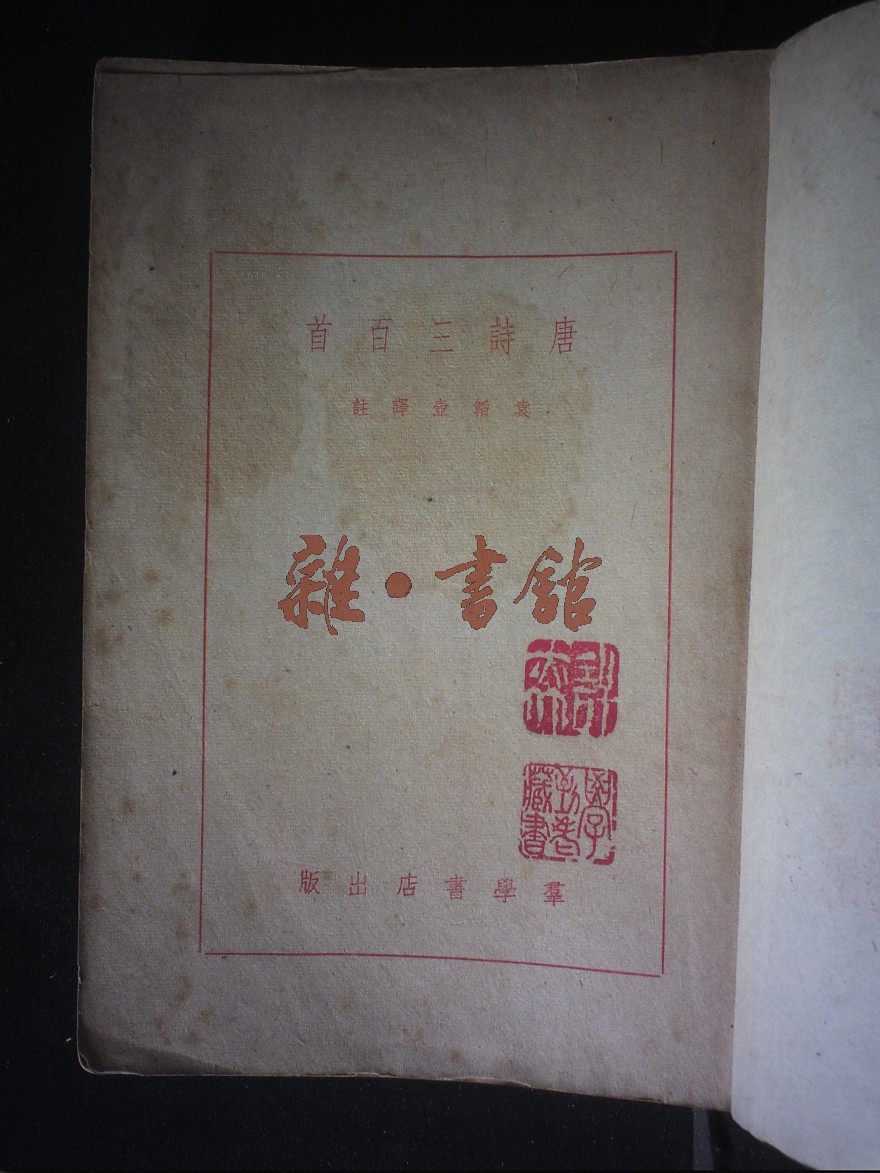 唐詩三百首
袁韜壺譯註
雜·書館
藏書
羣學書店出版